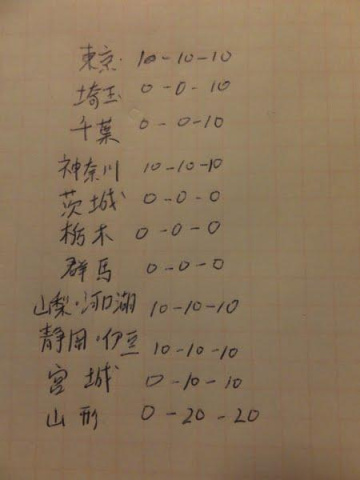 東京 10-10-10
埼玉 0-0-10
千葉 0-0-10
神奈川 10-10-10
茨城 0-0-0
栃木 0-0-0
群馬 0-0-0
山梨・河口湖 10-10-10
静岡・伊豆 10-10-10
宮城 0-10-10
山形 0-20-20